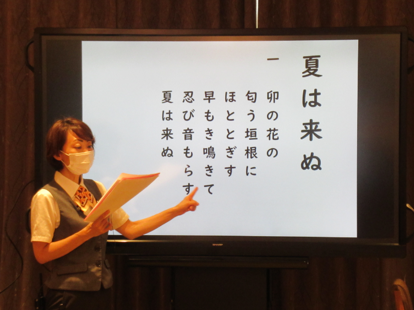 夏は来ぬ
一 卯の花の
匂う垣根に
ほととぎす
早もき鳴きて
忍び音もらす
夏は来ぬ